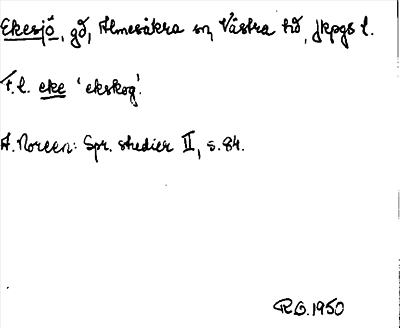 Ekesjö, gd, Almesåkra sn, Västra hd, Jkpgs l.
F.l. eke 'ekskog'.
A. Noreen: Spr. studier II, s. 84.
R.O. 1950